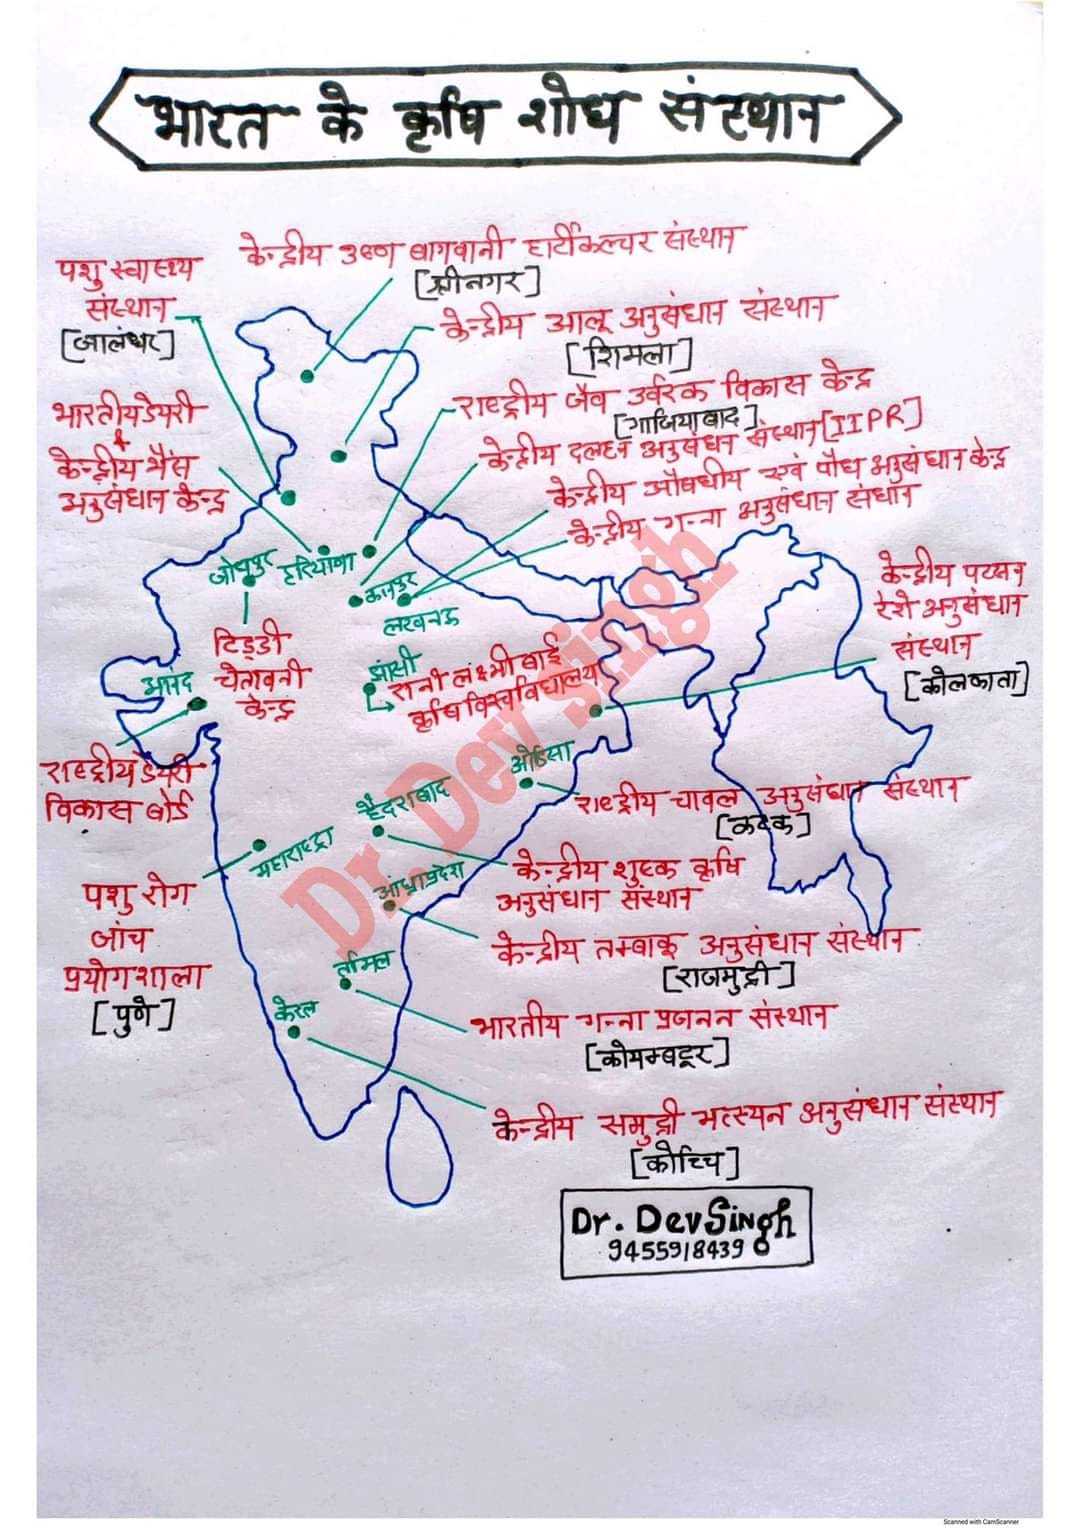 भारत के कृषि शोध संस्थान
केन्द्रीय उष्ण बागवानी हार्टीकल्चर संस्थान
[श्रीनगर]
पशु स्वास्थ्य
संस्थान
[जालंधर]
केन्द्रीय आलू अनुसंधान संस्थान
[शिमला]
राष्ट्रीय जैव उर्वरक विकास केन्द्र
[गाजियाबाद]
भारतीय डेयरी
&
केन्द्रीय भैंस
अनुसंधान केन्द्र
केन्द्रीय दलहन अनुसंधान संस्थान [IIPR]
केन्द्रीय औषधीय एवं पौध अनुसंधान केन्द्र
केन्द्रीय गन्ना अनुसंधान संधान
जोधपुर
हरियाणा
कानपुर
लखनऊ
केन्द्रीय पटसन
रेशे अनुसंधान
संस्थान
[कोलकाता]
टिड्डी
चेतावनी
केन्द्र
झांसी
रानी लक्ष्मीबाई
कृषि विश्वविद्यालय
आनंद
राष्ट्रीय डेयरी
विकास बोर्ड
ओडिसा
राष्ट्रीय चावल अनुसंधान संस्थान
[कटक]
हैदराबाद
महाराष्ट्रा
केन्द्रीय शुष्क कृषि
अनुसंधान संस्थान
आंध्राप्रदेश
पशु रोग
जांच
प्रयोगशाला
[पुणे]
केन्द्रीय तम्बाकू अनुसंधान संस्थान
[राजमुद्री]
तमिल
भारतीय गन्ना प्रजनन संस्थान
[कोयम्बटूर]
केरल
केन्द्रीय समुद्री मत्स्यन अनुसंधान संस्थान
[कोच्चि]
Dr. Dev Singh
Dr. Dev Singh
9455918439
Scanned with CamScanner